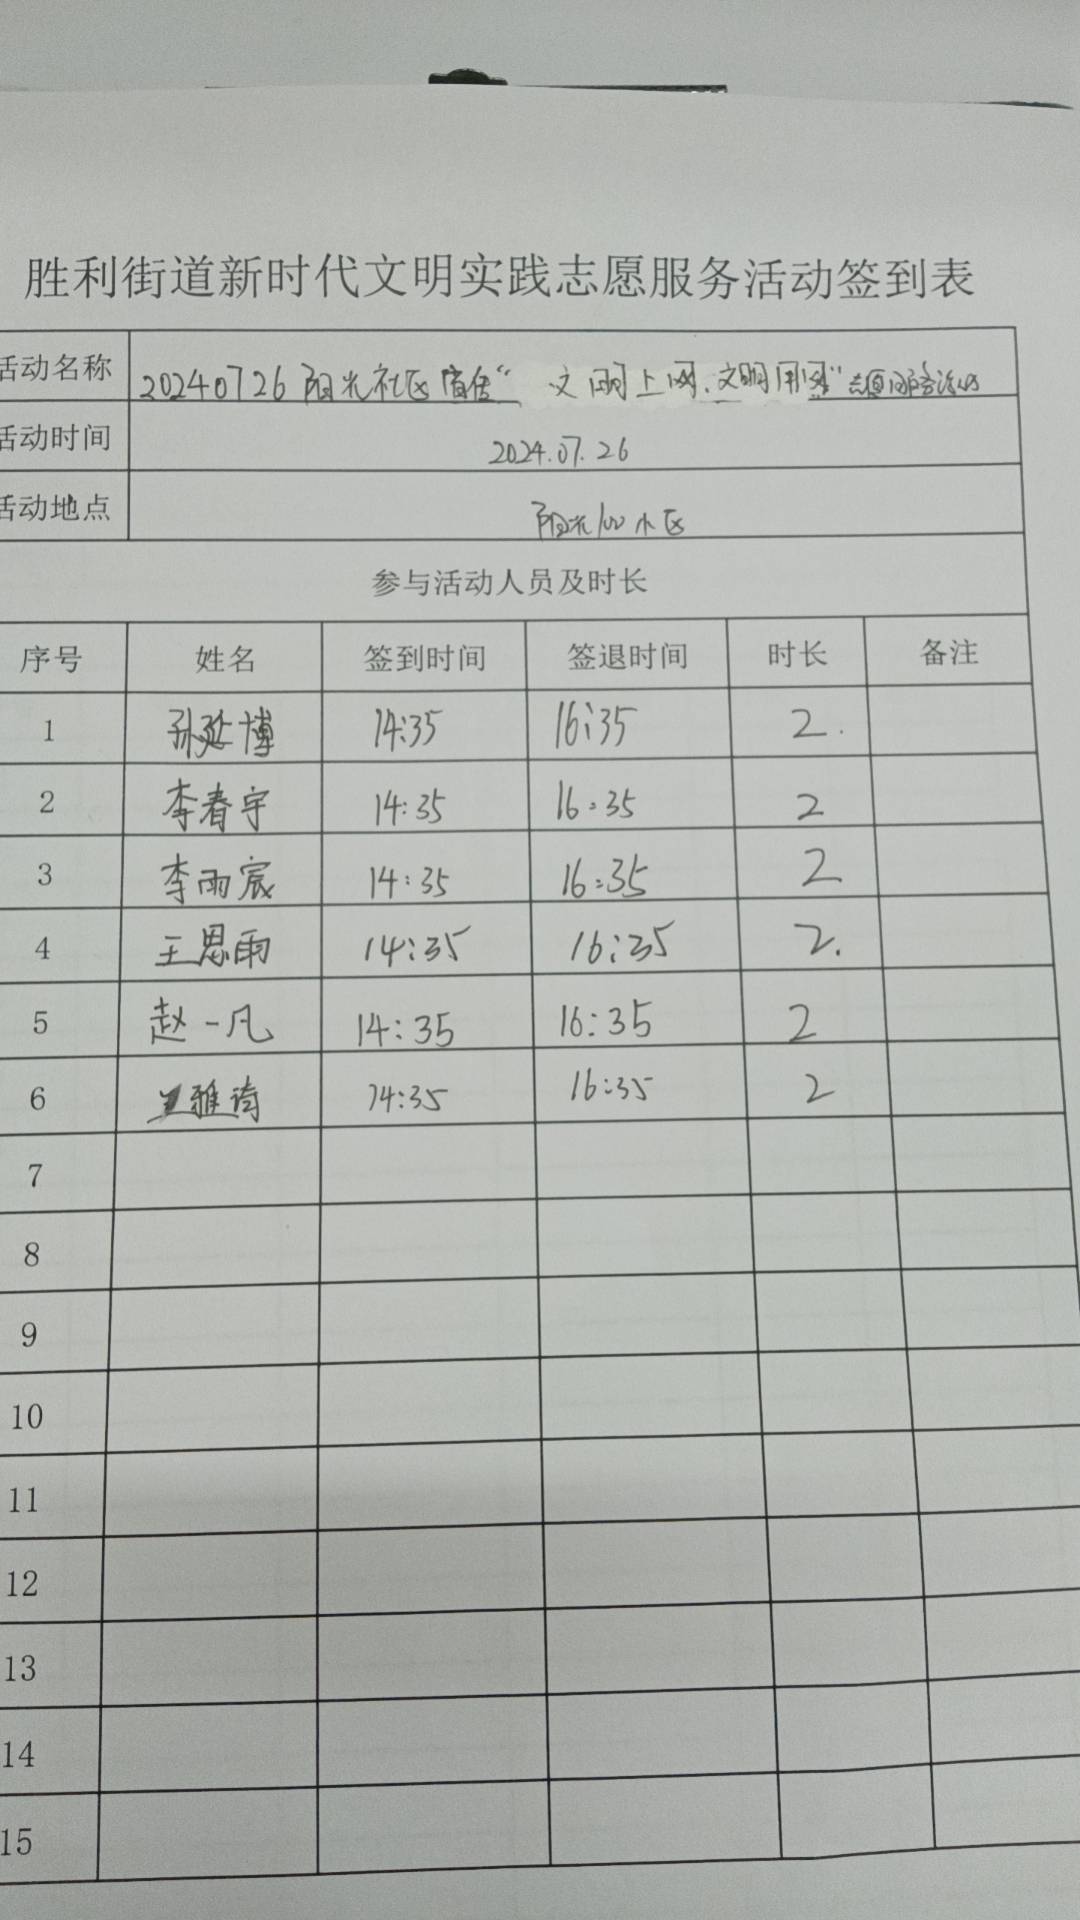 胜利街道新时代文明实践志愿服务活动签到表
活动名称 20240726 阳光社区宣传“文明上网、文明用网”志愿服务活动
活动时间 2024.07.26
活动地点 阳光100小区
参与活动人员及时长
序号 姓名 签到时间 签退时间 时长 备注
1 孙延博 14:35 16:35 2.
2 李春宇 14:35 16:35 2
3 李雨宸 14:35 16:35 2
4 王思雨 14:35 16:35 2.
5 赵一凡 14:35 16:35 2
6 雅诗 14:35 16:35 2
7
8
9
10
11
12
13
14
15